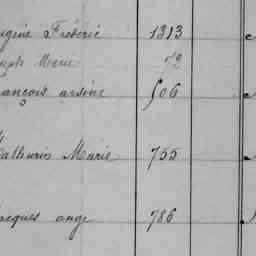 ugène Frédéric 1313
seph Marie 73
ançois arsène 506
Mathurin Marie 755
acques ange 786